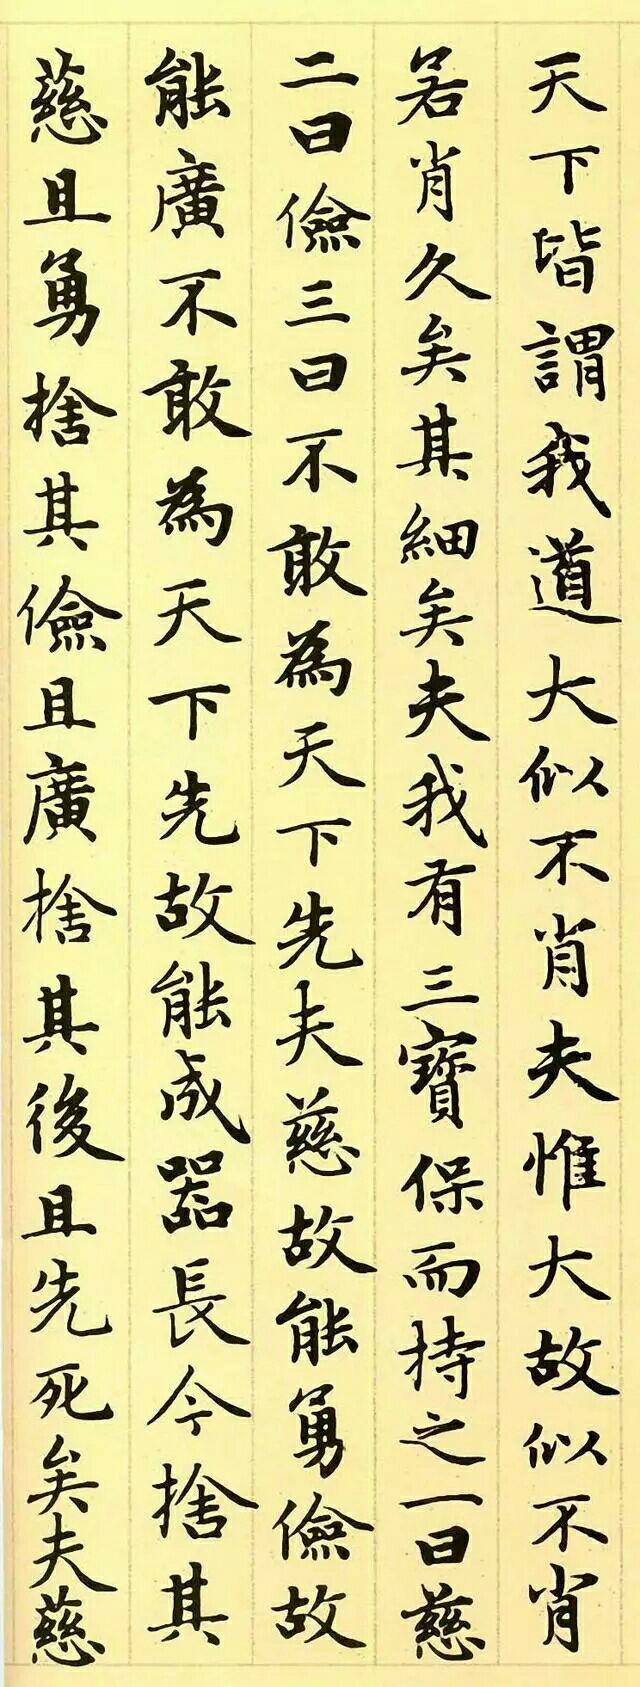 天下皆謂我道大似不肖夫惟大故似不肖
若肖久矣其細矣夫我有三寶保而持之一曰慈
二曰儉三曰不敢為天下先夫慈故能勇儉故
能廣不敢為天下先故能成器長今捨其
慈且勇捨其儉且廣捨其後且先死矣夫慈